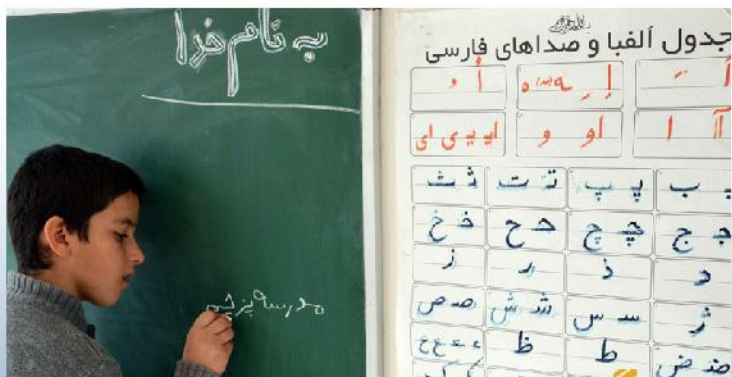 به نام خدا
مدرسه پز
جدول الفبا و صداهای فارسی
اَ ـَ
اِ ـِ ـه ه
اُ ـُ
آ ا
او و
ایـ یـ ی ای
بـ ب
پـ پ
تـ ت
ثـ ث
جـ ج
چـ چ
حـ ح
خـ خ
د
ذ
ر
ز
ژ
سـ س
شـ ش
صـ ص
ضـ ض
ط
ظ
عـ ـعـ ـع ع